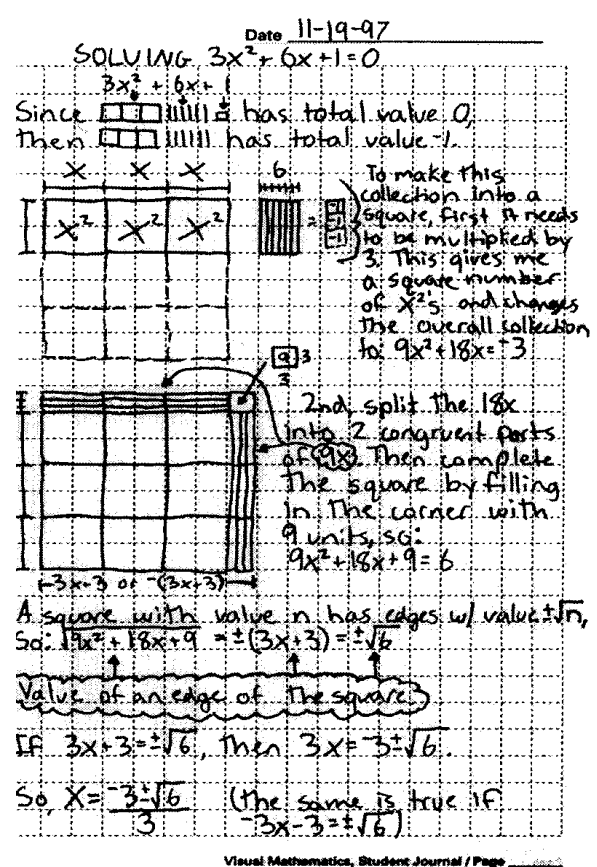 Date 11-19-97
SOLVING 3x² + 6x + 1 = 0
3x² + 6x + 1
Since has total value 0,
then has total value ⁻1.
X X X
6
X² X² X²
=
To make this
collection into a
square, first it needs
to be multiplied by
3. This gives me
a square number
of X²'s and changes
the overall collection
to: 9x² + 18x = ⁻3
9 3
3
2nd, split the 18x
into 2 congruent parts
of 9x. Then complete
the square by filling
in the corner with
9 units, so:
9x² + 18x + 9 = 6
3x+3 or ⁻(3x+3)
A square with value n has edges w/ value ±√n,
So: √9x² + 18x + 9 = ±(3x+3) = ±√6
Value of an edge of the square
If 3x+3 = ±√6, then 3x = ⁻3±√6.
So, X = ⁻3±√6 / 3 (the same is true if
⁻3x-3 = ±√6)
Visual Mathematics, Student Journal / Page